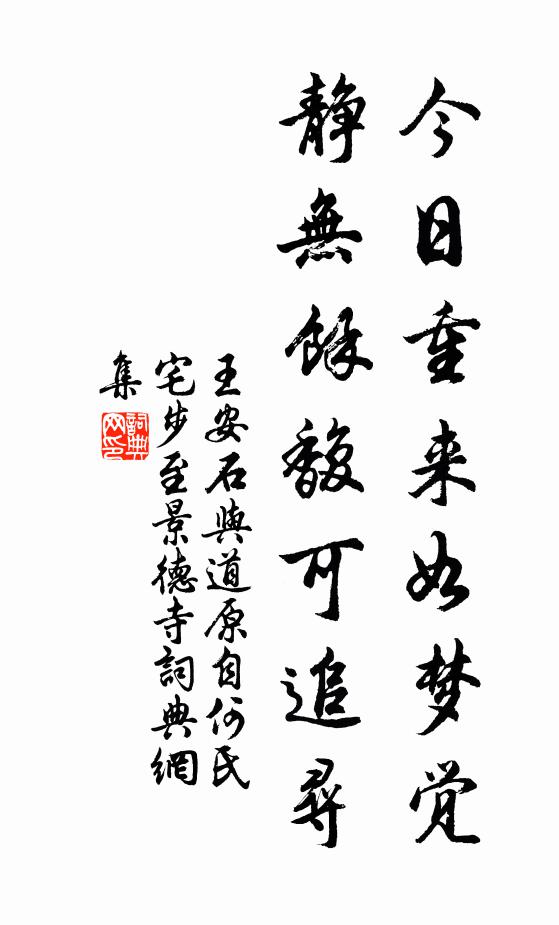 今日重来如梦觉
静無餘馥可追尋
王安石與道原自何氏
宅步至景德寺詞典網
集
詞典
网印